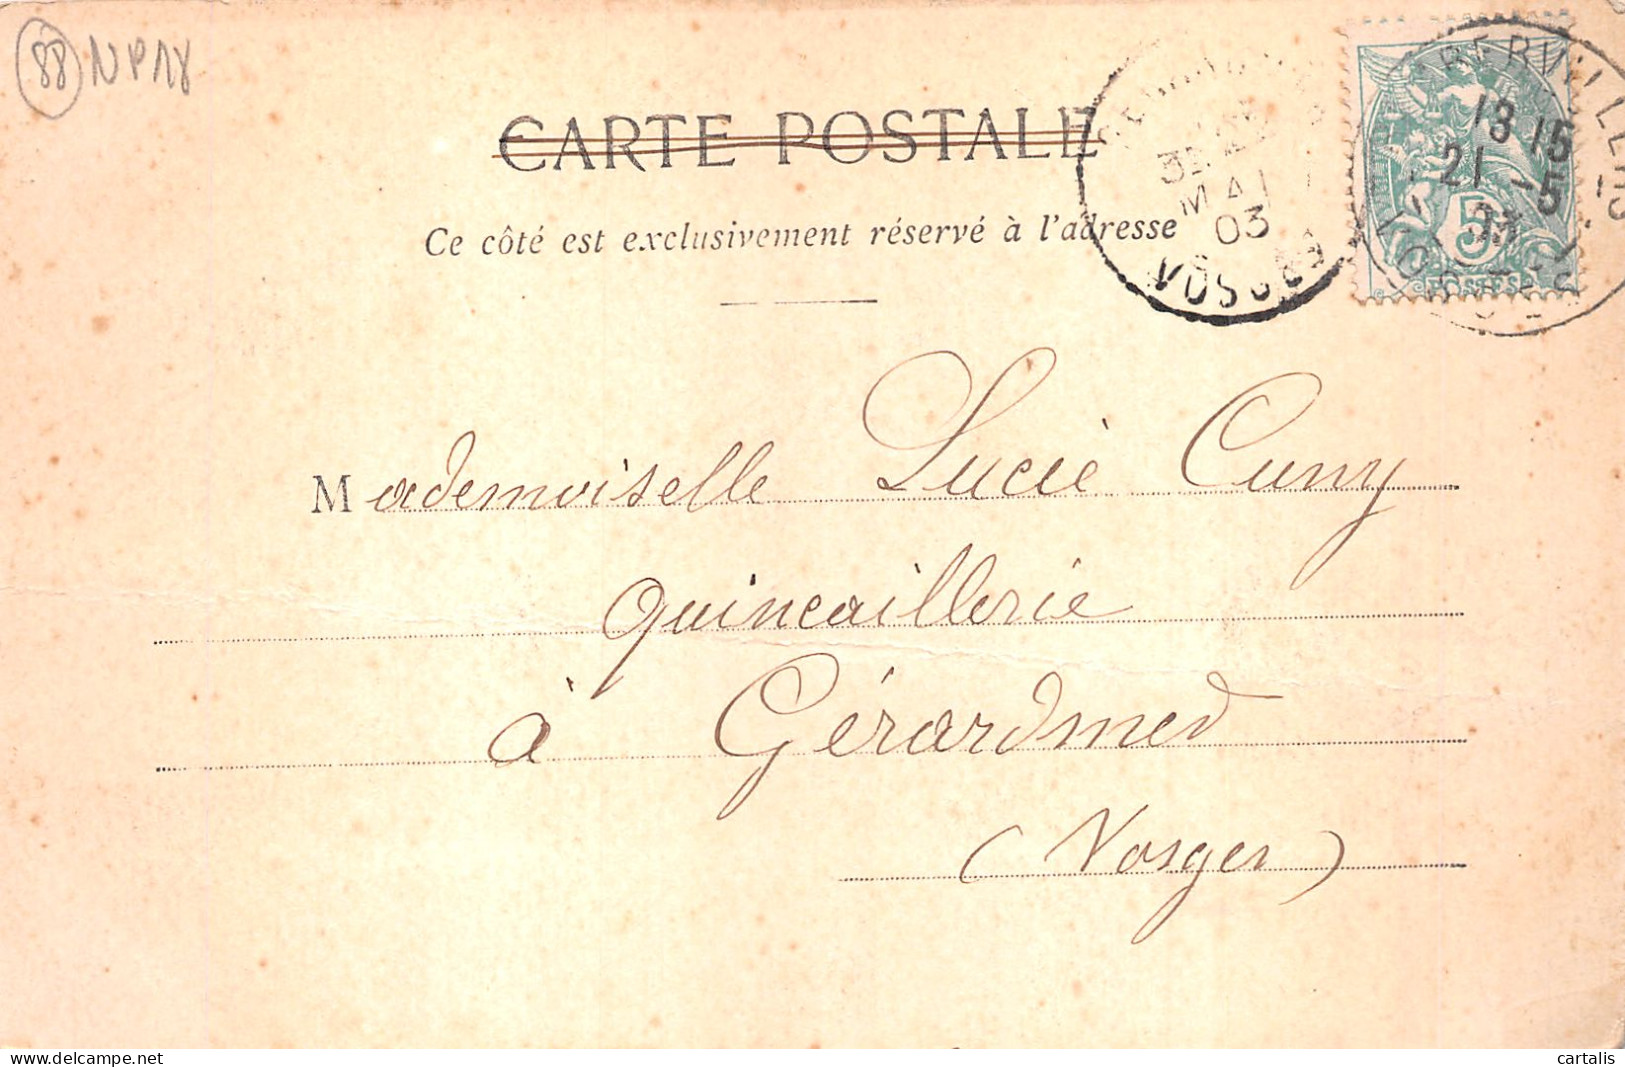 88 NP18
CARTE POSTALE
Ce côté est exclusivement réservé à l'adresse
MAI
03
VOSGES
18 15
21 -5
03
5
POSTES
Mademoiselle Lucie Cuny
Quincaillerie
à Gérardmer
(Vosges)
cartalis
delcampe.net